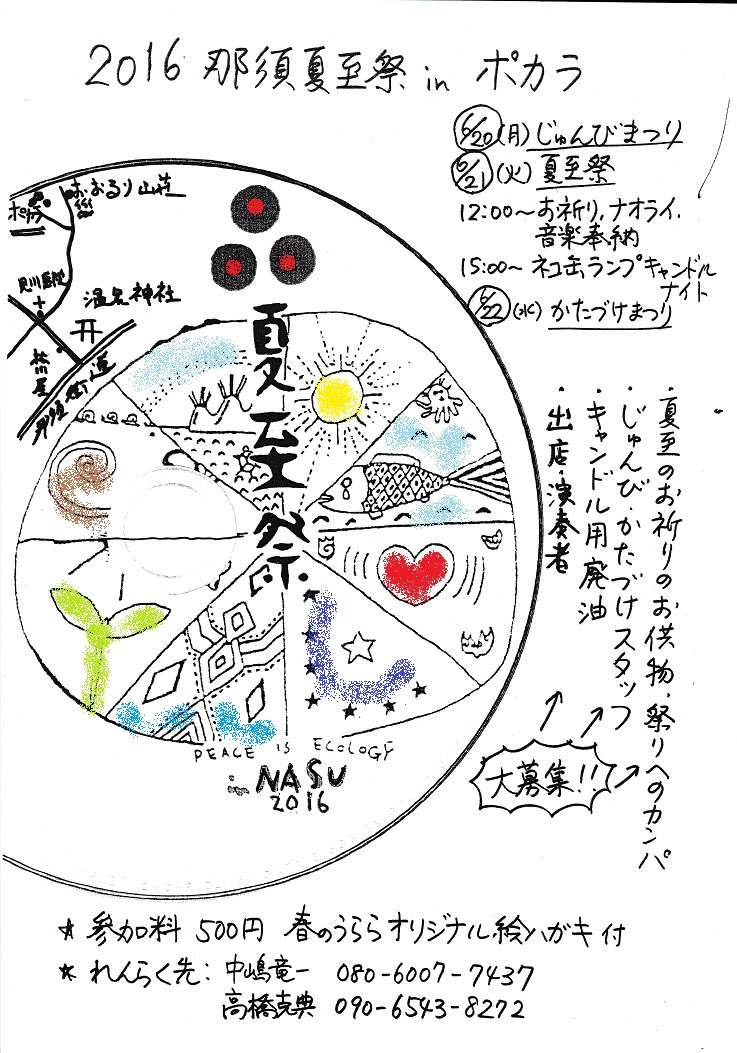 2016 那須夏至祭 in ポカラ
6/20(月)じゅんびまつり
6/21(火) 夏至祭
12:00～お祈り、ナオライ、
音楽奉納
15:00～ネコ缶ランプキャンドル
ナイト
6/22(水) かたづけまつり
おおるり山荘
ポカラ
温泉神社
那須街道
夏至祭
PEACE IS ECOLOGY
in NASU
2016
・夏至のお祈りのお供物、祭りへのカンパ
・じゅんび・かたづけスタッフ
・キャンドル用廃油
・出店・演奏者
大募集!!
★ 参加料 500円 春のうららオリジナル絵ハガキ付
★ れんらく先: 中嶋竜一 080-6007-7437
高橋克典 090-6543-8272